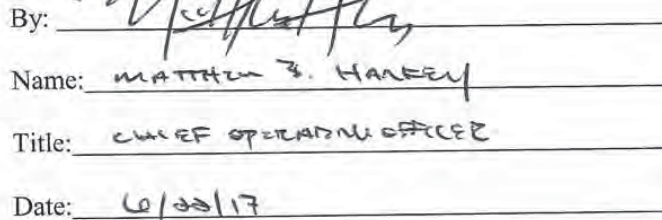 By:
Name: MATTHEW B. HARKEY
Title: CHIEF OPERATING OFFICER
Date: 6/22/17